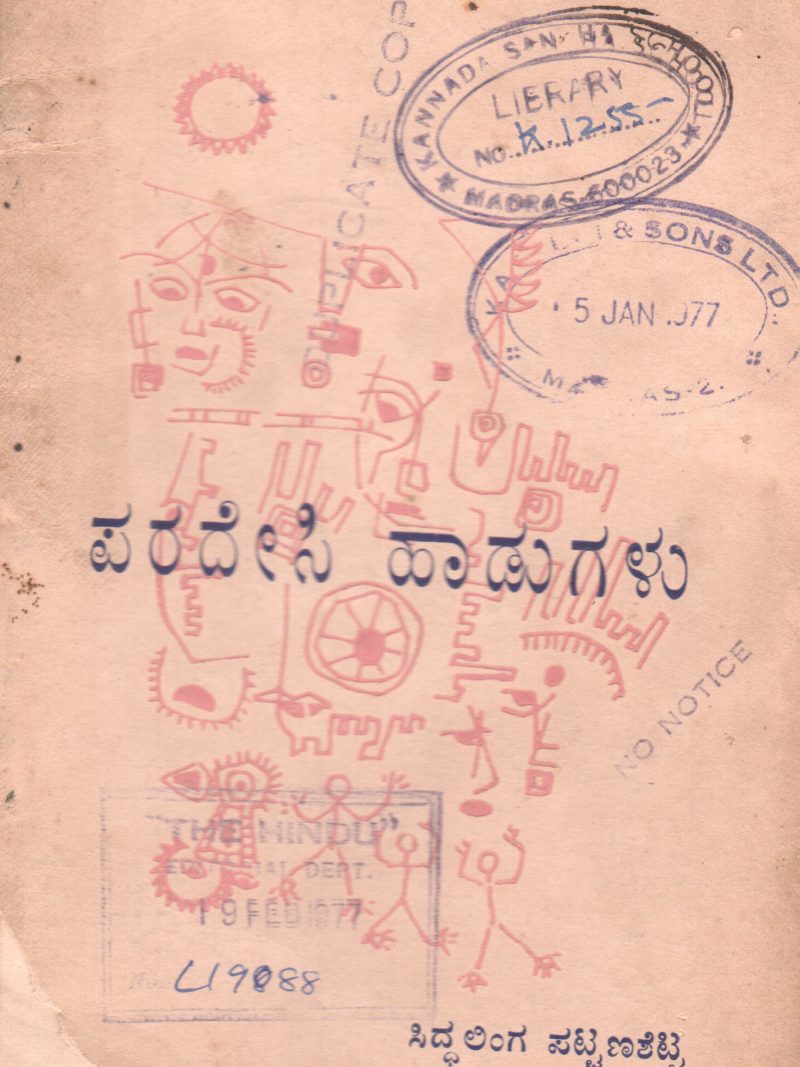 DUPLICATE COP
KANNADA SANGHA
LIBRARY
NO. K 1255-
MADRAS-600023
& SONS LTD.
5 JAN 1977
ಪರದೇಸಿ ಹಾಡುಗಳು
NO NOTICE
"THE HINDU"
EDITORIAL DEPT.
19 FEB 1977
No.
ಸಿದ್ಧಲಿಂಗ ಪಟ್ಟಣಶೆಟ್ಟಿ